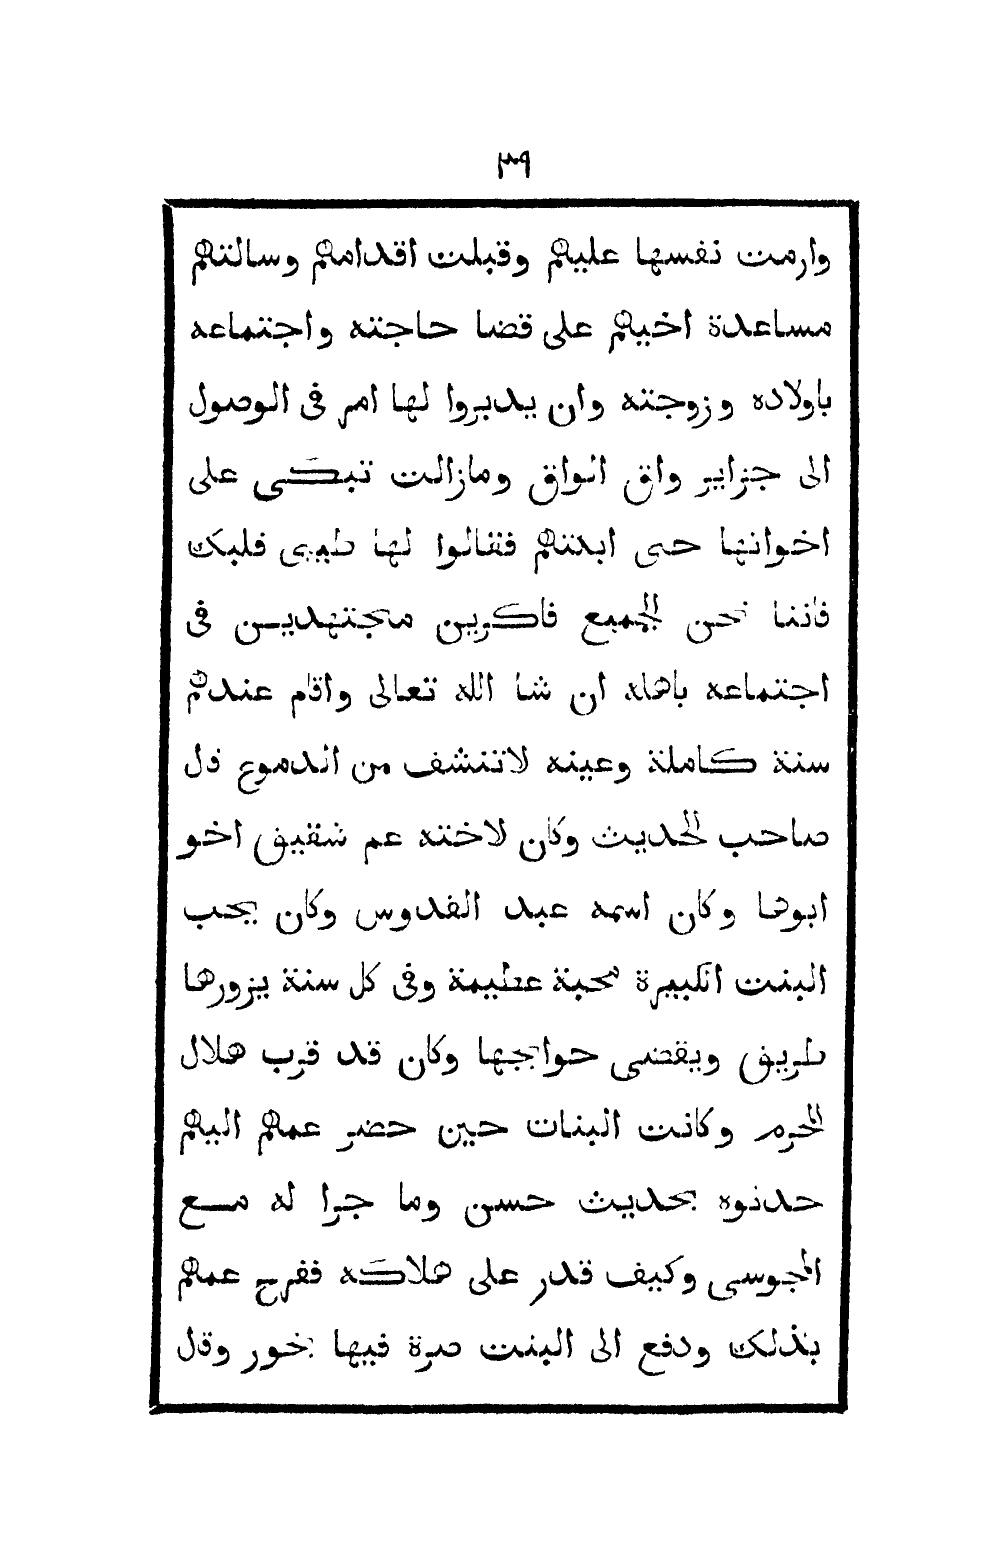 ٣٩
وارمت نفسها عليهم وقبلت اقدامهم وسالتهم
مساعدة اخيهم على قضا حاجته واجتماعه
باولاده وزوجته وان يدبروا لها امر فى الوصول
الى جزاير واق الواق ومازالت تبكى على
اخوانها حتى ابكتهم فقالوا لها طيبى قلبك
فاننا نحن الجميع فاكرين مجتهدين فى
اجتماعه باهله ان شا الله تعالى واقام عندهم
سنة كاملة وعينه لاتنشف من الدموع قال
صاحب الحديث وكان لاخته عم شقيق اخو
ابوها وكان اسمه عبد القدوس وكان يحب
البنت الكبيرة محبة عظيمة وفى كل سنة يزورها
طريق ويقضى حوايجها وكان قد قرب هلال
المحرم وكانت البنات حين حضر عمهم اليهم
حدثوه بحديث حسن وما جرا له مع
المجوسى وكيف قدر على هلاكه ففرح عمهم
بذلك ودفع الى البنت صرة فيها بخور وقال